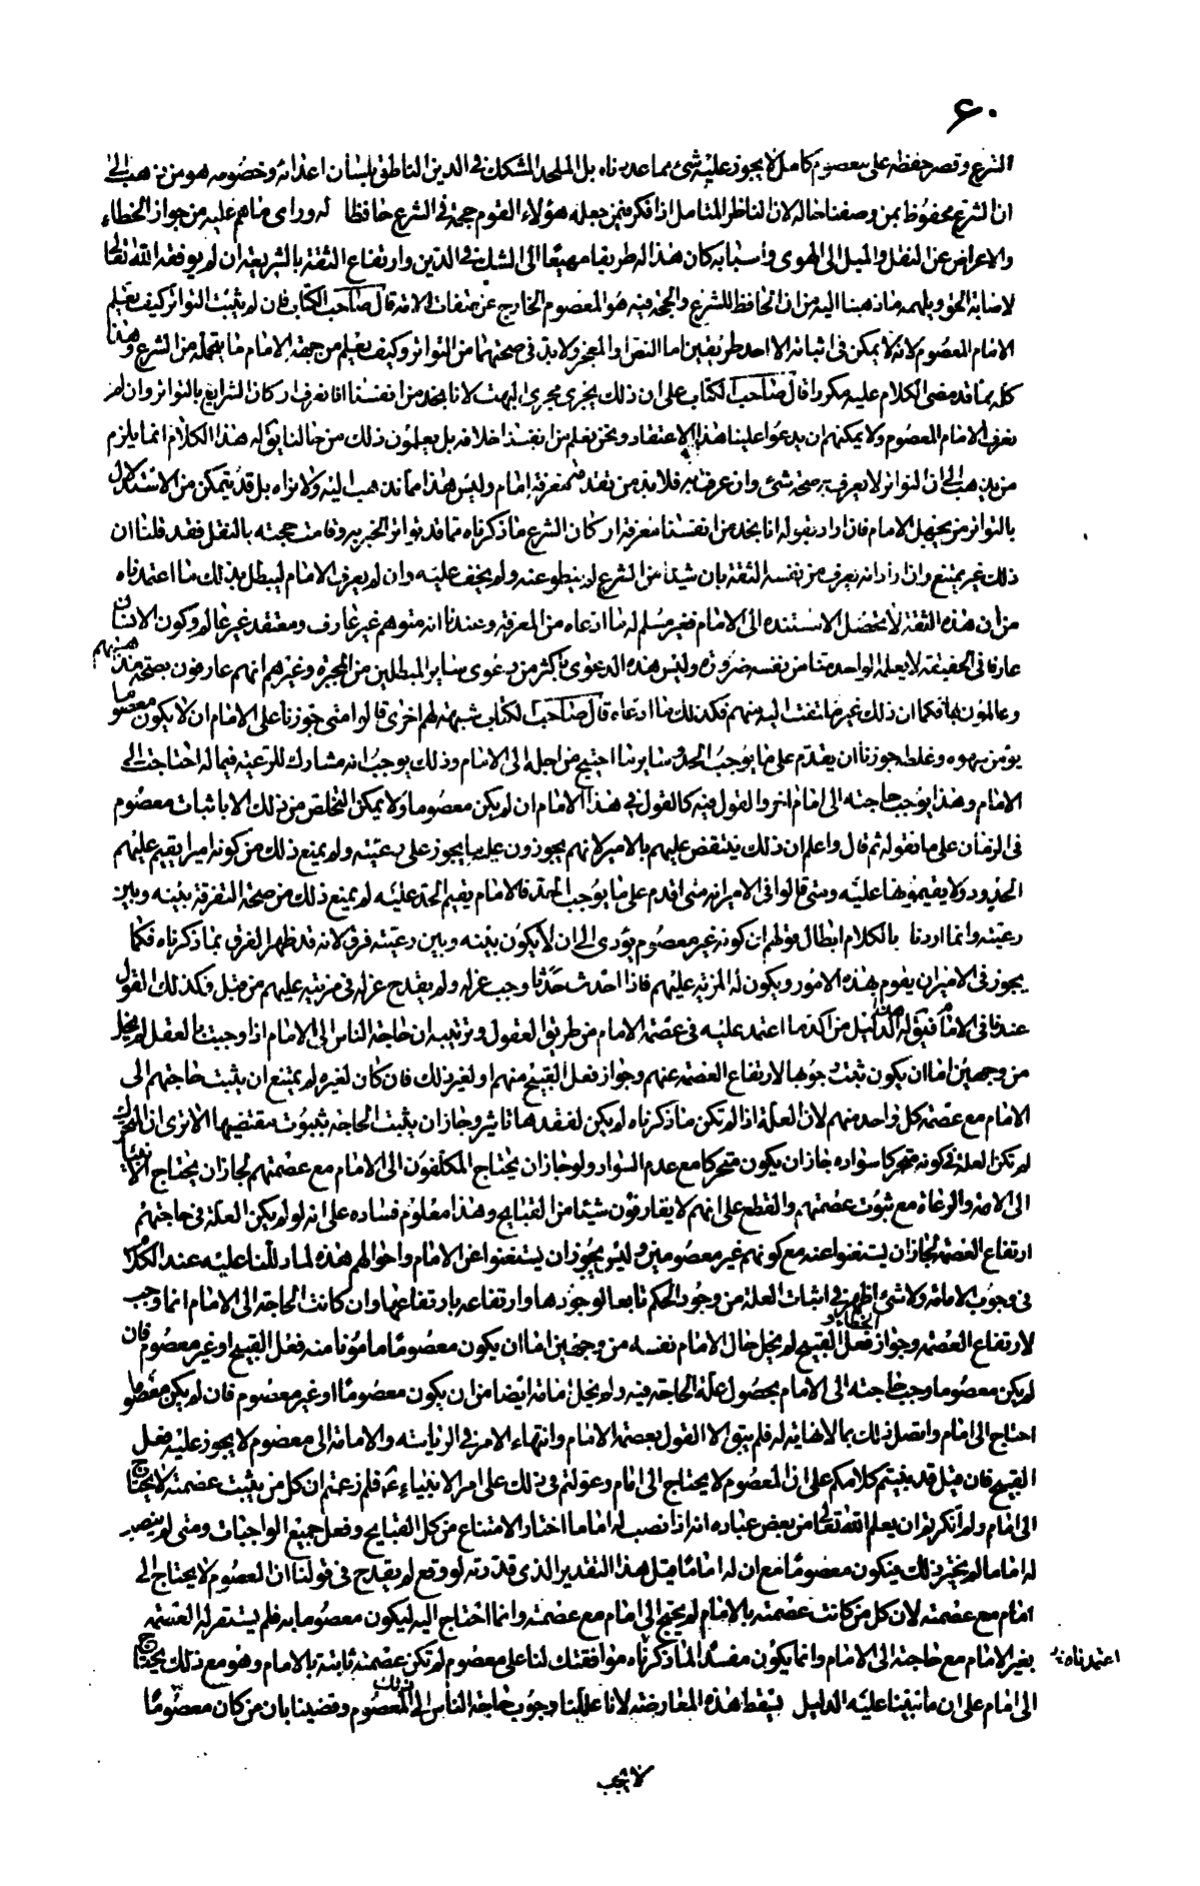 ۶۰
الشرع وقصر حفظه على معصوم كامل لا يجوز عليه شئ مما عددناه بل الملحد المشكك في الدين الناطق بلسان اعدائه وخصومه هو من ذهب الى
ان الشرع محفوظ بمن وصفنا حاله لان الناظر المتامل اذا فكر فيمن جعله هؤلاء القوم حجة في الشرع حافظا له وراى ما هم عليه من جواز الخطاء
والاعراض عن النقل والميل الى الهوى واسبابه كان هذا له طريقا مهيعا الى الشك في الدين وارتفاع الثقة بالشريعة ان لم يوفقه الله تعالى
لاصابة الحق ويلهمه ما ذهبنا اليه من ان الحافظ للشرع والحجة فيه هو المعصوم الخارج عن صفات الامة قال صاحب الكتاب فان لم يثبت التواتر كيف يعلم
الامام المعصوم لانه لا يمكن في اثباته الا احد طريقين اما النص او المعجز ولا بد في صحتهما من التواتر وكيف يعلم من جهة الامام ما يتحمله من الشرع وهذا
كله مما قد مضى الكلام عليه مكررا قال صاحب الكتاب على ان ذلك يجرى مجرى البهت لانا نجد من انفسنا انا نعرف اركان الشرايع بالتواتر وان لم
نعرف الامام المعصوم ولا يمكنهم ان يدعوا علينا هذا الاعتقاد ونحن نعلم من انفسنا خلافه بل يعلمون ذلك من حالنا يق له هذا الكلام انما يلزم
من يذهب الى ان التواتر لا يعرف به صحة شئ وان عرف به فلا بد من تقدم معرفة امام وليس هذا مما نذهب اليه ولا نراه بل قد يتمكن من الاستدلال
بالتواتر من يجهل الامام فان اراد بقوله انا نجد من انفسنا معرفة اركان الشرع ما ذكرناه مما قد تواتر الخبر به وقامت حجته بالنقل فقد قلنا ان
ذلك غير ممتنع وان اراد انه يعرف من نفسه الثقة بان شيئا من الشرع لم ينطو عنه ولم يخف عليه وان لم يعرف الامام ليبطل بذلك ما اعتمدناه
من ان هذه الثقة لا تحصل الا مستندة الى الامام فغير مسلم له ما ادعاه من المعرفة وعندنا انه متوهم غير عارف ومعتقد غير عالم وكون الانسان
عارفا في الحقيقة لا يعلمه الواحد منا من نفسه ضرورة وليس هذه الدعوى باكثر من دعوى ساير المبطلين من المجبرة وغيرهم انهم عارفون بصحة مذاهبهم
وعالمون بها فكما ان ذلك غير ملتفت اليه منهم فكذلك ما ادعاه قال صاحب الكتاب شبهة لهم اخرى قالوا متى جوزنا على الامام ان لا يكون معصوما
يؤمن سهوه وغلطه جوزنا ان يقدم على ما يوجب الحد وساير ما احتيج من اجله الى الامام وذلك يوجب انه مشارك للرعية فيما له احتاجت الى
الامام وهذا يوجب حاجته الى امام اخر والقول فيه كالقول في هذا الامام ان لم يكن معصوما ولا يمكن التخلص من ذلك الا باثبات معصوم
في الزمان على ما نقوله ثم قال واعلم ان ذلك ينتقض عليهم بالامير لانهم يجوزون عليه ما يجوز على رعيته ولم يمنع ذلك من كونه اميرا يقيم عليهم
الحدود ولا يقيمونها عليه ومتى قالوا في الامير انه متى اقدم على ما يوجب الحد فالامام يقيم الحد عليه لم يمنع ذلك من صحة التفرقة بينه وبين
رعيته وانما اردنا بالكلام ابطال قولهم ان كونه غير معصوم يؤدى الى ان لا يكون بينه وبين رعيته فرق لانه قد ظهر الفرق بما ذكرناه فكما
يجوز في الامير ان يقوم بهذه الامور ويكون له المزية عليهم فاذا احدث حدثا وجب عزله ولم يقدح عزله في مزيته عليهم من قبل فكذلك القول
عندنا في الامام فيق له هذا الدليل من اكد ما اعتمد عليه في عصمة الامام من طريق العقول وترتيبه ان حاجة الناس الى الامام اذا وجبت بالعقل لم يخل
من وجهين اما ان يكون ثبت وجوبها لارتفاع العصمة عنهم وجواز فعل القبيح منهم او لغير ذلك فان كان لغيره لم يمتنع ان يثبت حاجتهم الى
الامام مع عصمة كل واحد منهم لان العلة اذا لم تكن ما ذكرناه لم يكن لفقدها تاثير وجاز ان يثبت الحاجة بثبوت مقتضيها الا ترى ان المتحرك
لم تكن العلة في كونه متحركا سواده جاز ان يكون متحركا مع عدم السواد ولو جاز ان يحتاج المكلفون الى الامام مع عصمتهم لجاز ان يحتاج الانبياء
الى الائمة والرعاة مع ثبوت عصمتهم والقطع على انهم لا يقارفون شيئا من القبايح وهذا معلوم فساده على انه لو لم يكن العلة في حاجتهم
ارتفاع العصمة لجاز ان يستغنوا عنه مع كونهم غير معصومين وليس يجوز ان يستغنوا عن الامام واحوالهم هذه لما دللنا عليه عند الكلام
في وجوب الامامة ولا شئ اظهر في اثبات العلة من وجود الحكم تابعا لوجودها وارتفاعه بارتفاعها وان كانت الحاجة الى الامام انما وجبت
لارتفاع العصمة وجواز الخطاء وفعل القبيح لم يخل حال الامام نفسه من وجهين اما ان يكون معصوما مامونا منه فعل القبيح او غير معصوم فان
لم يكن معصوما وجب حاجته الى الامام بحصول علة الحاجة فيه ولم يخل امامه ايضا من ان يكون معصوما او غير معصوم فان لم يكن معصوما
احتاج الى امام واتصل ذلك بما لا نهاية له فلم يبق الا القول بعصمة الامام وانتهاء الامر في الرئاسة والامامة الى معصوم لا يجوز عليه فعل
القبيح فان قيل قد بنيتم كلامكم على ان المعصوم لا يحتاج الى امام وعولتم في ذلك على امر الانبياء ع فلم زعمتم ان كل من يثبت عصمته لا يحتاج
الى امام ولم انكرتم ان يعلم الله تعالى من بعض عباده انه اذا نصب له اماما اختار الامتناع من كل القبايح وفعل جميع الواجبات ومتى لم ينصب
له اماما لم يختر ذلك فيكون معصوما مع ان له اماما قيل هذا التقدير الذى قدرته لو وقع لم يقدح في قولنا ان المعصوم لا يحتاج الى
امام مع عصمته لان كل من كانت عصمته بالامام لم يحتج الى امام مع عصمته وانما احتاج اليه ليكون معصوما به فلم يستقر له العصمة
بغير الامام مع حاجته الى الامام وانما يكون مفسدا لما ذكرناه موافقتك لنا على معصوم لم تكن عصمته ثابتة بالامام وهو مع ذلك يحتاج
اعتمدناه
الى امام على ان ما بنينا عليه الدليل يسقط هذه المعارضة لانا عللنا وجوب حاجة الناس الى المعصوم وقضينا بان من كان معصوما
لا يجب